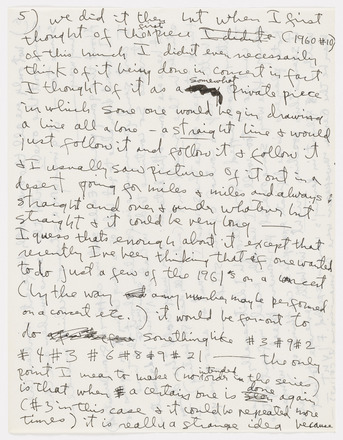 5) we did it then but when I first
thought of this first piece I didnt (1960 #10)
of this much I didn't even necessarily
think of it being done in concert in fact
I thought of it as a somewhat private piece
in which some one would begin drawing
a line all alone — a straight line & would
just follow it and follow it & follow it
& I usually saw pictures of it out in a
desert going for miles & miles and always
straight and over & under whatever but
straight & it could be very long ——
I guess thats enough about it except that
recently I've been thinking that if one wanted
to do just a few of the 1961's on a concert
(by the way any number may be performed
on a concert etc.) it would be far-out to
do something like #3 #9 #2
#4 #3 #6 #8 #9 #21 —— the only
point I mean to make (no order intended in the series)
is that when a certain one is done again
(#3 in this case & it could be repeated more
times) it is really a strange idea because